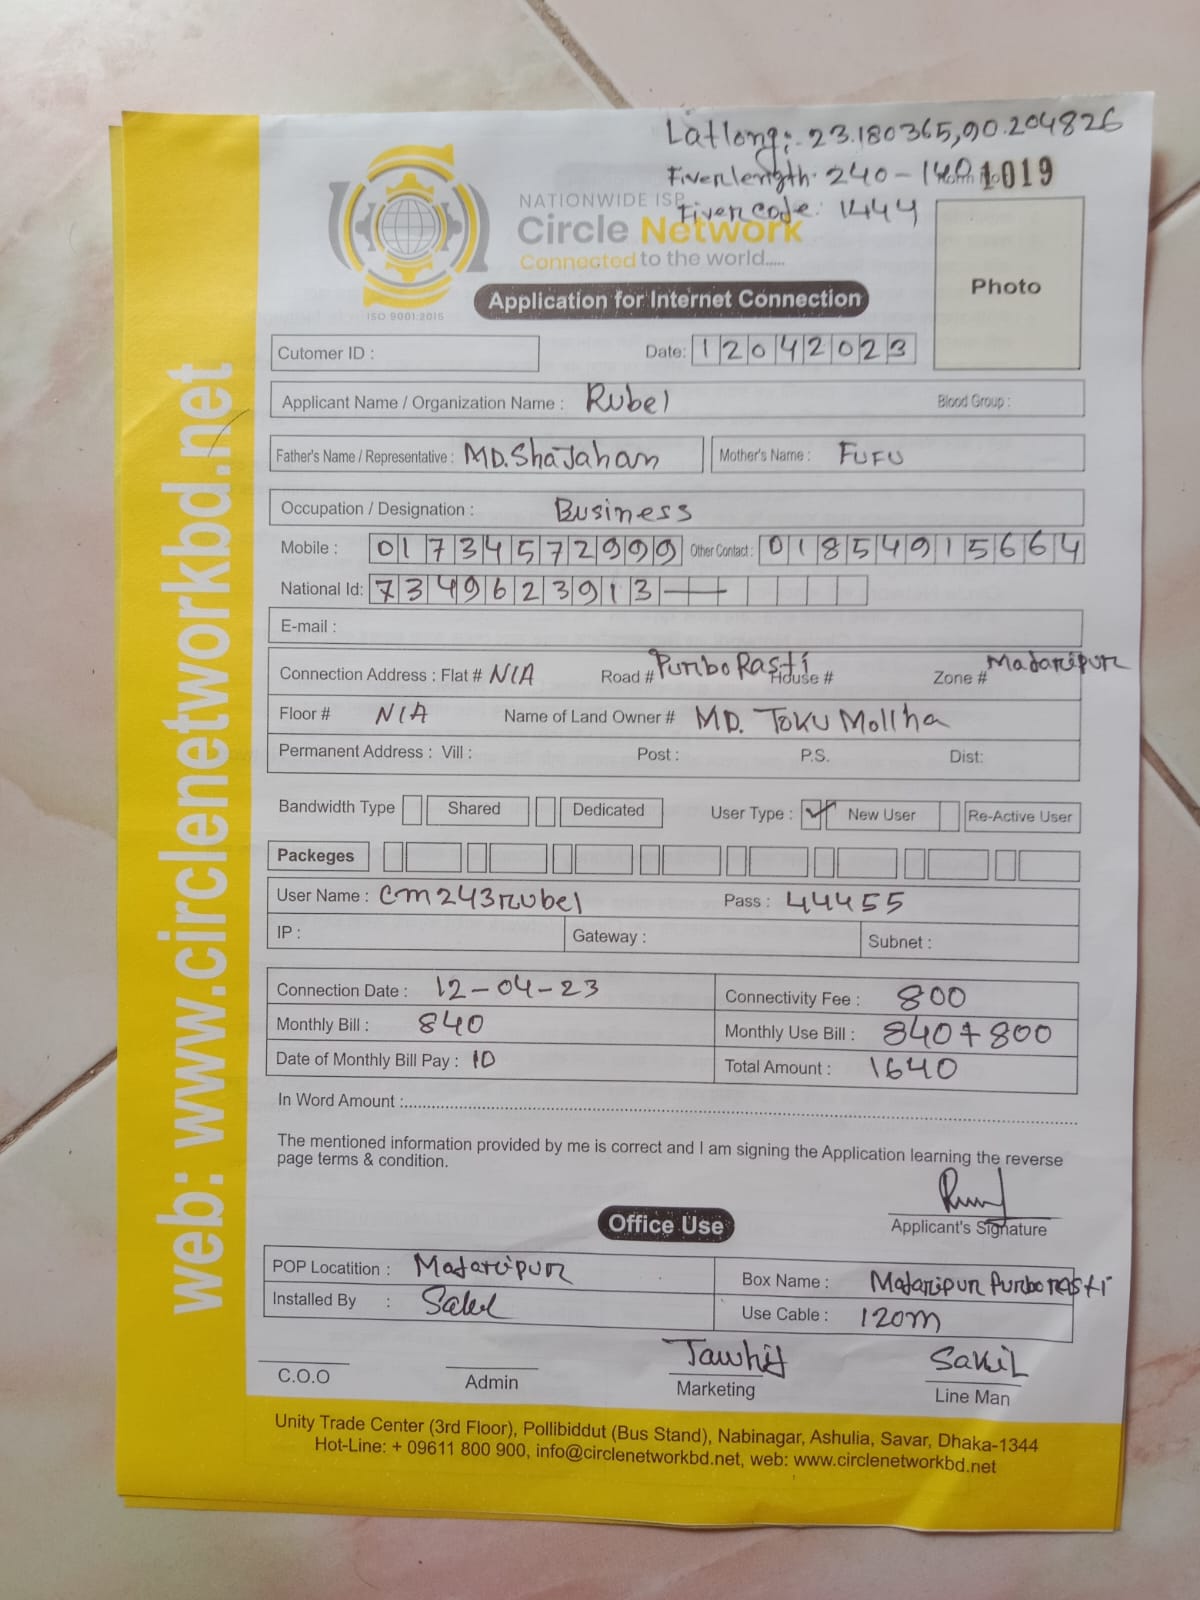 Latlong:- 23.180365,90.204826
Fiverlength: 240-140 1019
NATIONWIDE ISP
Fiver code: 1444
Circle Network
Connected to the world.....
ISO 9001:2015
Application for Internet Connection
Photo
Cutomer ID :
Date: 12042023
Applicant Name / Organization Name : Rubel Blood Group :
Father's Name / Representative : MD.ShaJahan Mother's Name : FUFU
Occupation / Designation : Business
Mobile : 01734572999 Other Contact : 01854915664
National Id: 7349623913
E-mail :
Connection Address : Flat # N/A Road # Purbo Rasti House # Zone # Madaripur
Floor # N/A Name of Land Owner # MD. Toku Mollha
Permanent Address : Vill : Post : P.S. Dist:
Bandwidth Type Shared Dedicated User Type : ✓ New User Re-Active User
Packeges
User Name : cm243rubel Pass : 44455
IP : Gateway : Subnet :
Connection Date : 12-04-23 Connectivity Fee : 800
Monthly Bill : 840 Monthly Use Bill : 840+800
Date of Monthly Bill Pay : 10 Total Amount : 1640
In Word Amount :
The mentioned information provided by me is correct and I am signing the Application learning the reverse
page terms & condition.
Applicant's Signature
Office Use
POP Locatition : Madaripur Box Name : Madaripur Purbo rasti
Installed By : Use Cable : 120m
Tawhid Sakil
C.O.O Admin Marketing Line Man
Unity Trade Center (3rd Floor), Pollibiddut (Bus Stand), Nabinagar, Ashulia, Savar, Dhaka-1344
Hot-Line: + 09611 800 900, info@circlenetworkbd.net, web: www.circlenetworkbd.net
web: www.circlenetworkbd.net